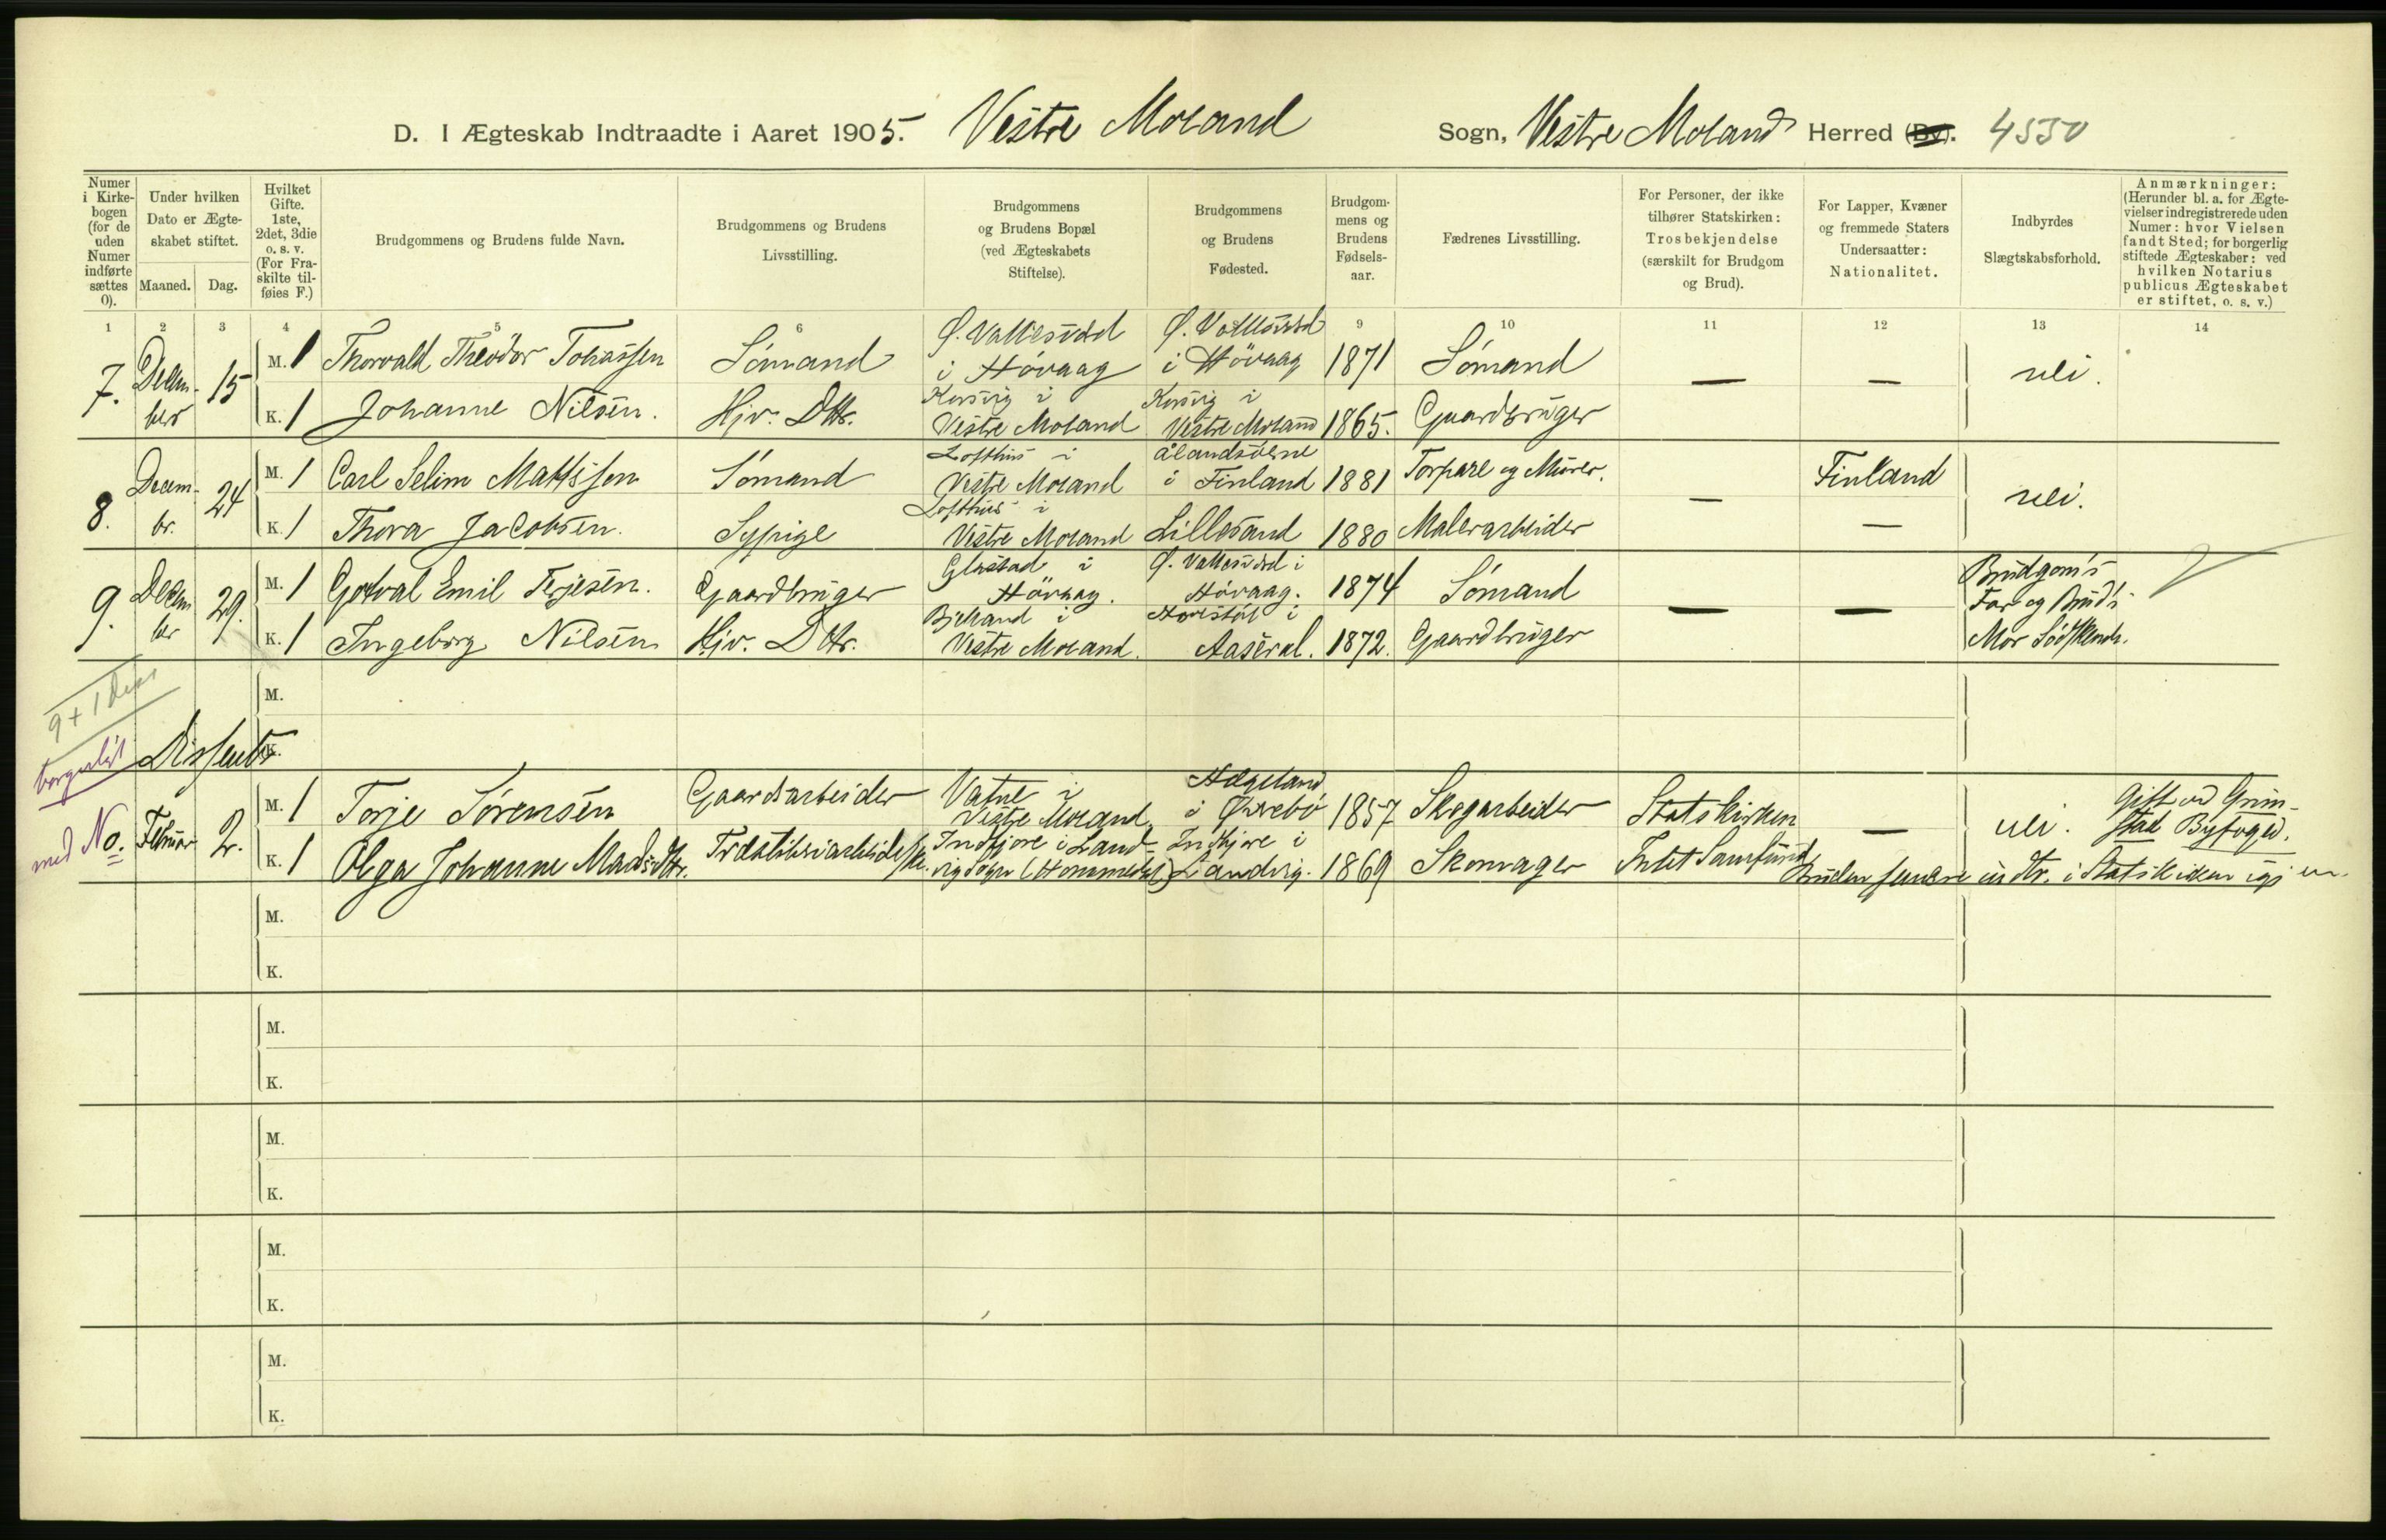 D. I Ægteskab Indtraadte i Aaret 1905. Vestre Moland Sogn, Vestre Moland Herred (By). 4550
Numer i Kirkebogen (for de uden Numer indførte sættes 0).
Under hvilken Dato er Ægteskabet stiftet.
Maaned. Dag.
Hvilket Gifte. 1ste, 2det, 3die o. s. v. (For Fraskilte tilføies F.)
Brudgommens og Brudens fulde Navn.
Brudgommens og Brudens Livsstilling.
Brudgommens og Brudens Bopæl (ved Ægteskabets Stiftelse).
Brudgommens og Brudens Fødested.
Brudgommens og Brudens Fødselsaar.
Fædrenes Livsstilling.
For Personer, der ikke tilhører Statskirken: Trosbekjendelse (særskilt for Brudgom og Brud).
For Lapper, Kvæner og fremmede Staters Undersaatter: Nationalitet.
Indbyrdes Slægtskabsforhold.
Anmærkninger: (Herunder bl. a. for Ægtevielser indregistrerede uden Numer: hvor Vielsen fandt Sted; for borgerlig stiftede Ægteskaber: ved hvilken Notarius publicus Ægteskabet er stiftet, o. s. v.)
1 2 3 4 5 6 9 10 11 12 13 14
7. Decem-ber 15 M. 1 Thorvald Theodor Tobiassen Sømand Ø. Vallesværd i Høvaag Ø. Vallesværd i Høvaag 1871 Sømand — — nei.
K. 1 Johanne Nilsen. Hjv. Dttr. Kjørvig i Vestre Moland Vestre Moland 1865. Gaardbruger
8. Decem-br. 24 M. 1 Carl Selim Mattsson Sømand Lofthus i Vestre Moland Ålandsöerne i Finland 1881 Torpare og Murer. — Finland nei.
K. 1 Thora Jacobsen. Sypige Lofthus i Vestre Moland Lillesand 1880 Malerarbeider —
9. Decem-ber 29. M. 1 Gotval Emil Terjesen. Gaardbruger Glastad i Høvaag. Ø. Vallesværd i Høvaag. 1874 Sømand — — Brudgom's Far og Brud's Mor Sødskende.
K. 1 Ingeborg Nilsen Hjv. Dttr. Bjelland i Vestre Moland. i Aaseral. 1872. Gaardbruger
M.
9 + 1 Diss
K.
borgerligt Dissentr
med No. Februar 2. M. 1 Terje Sørensen Gaardsarbeider Vatne i Vestre Moland. Hægeland i Øvrebø 1857 Skogarbeider Statskirken — nei. Gift ved Grimstad Byfoged.
K. 1 Olga Johanne Madsdttr. Indtjore i Landvig Sogn (Hommedal) Indtjore i Landvig. 1869 Skomager Intet Samfund Bruden senere indtr. i Statskirken igjen.
M.
K.
M.
K.
M.
K.
M.
K.
M.
K.